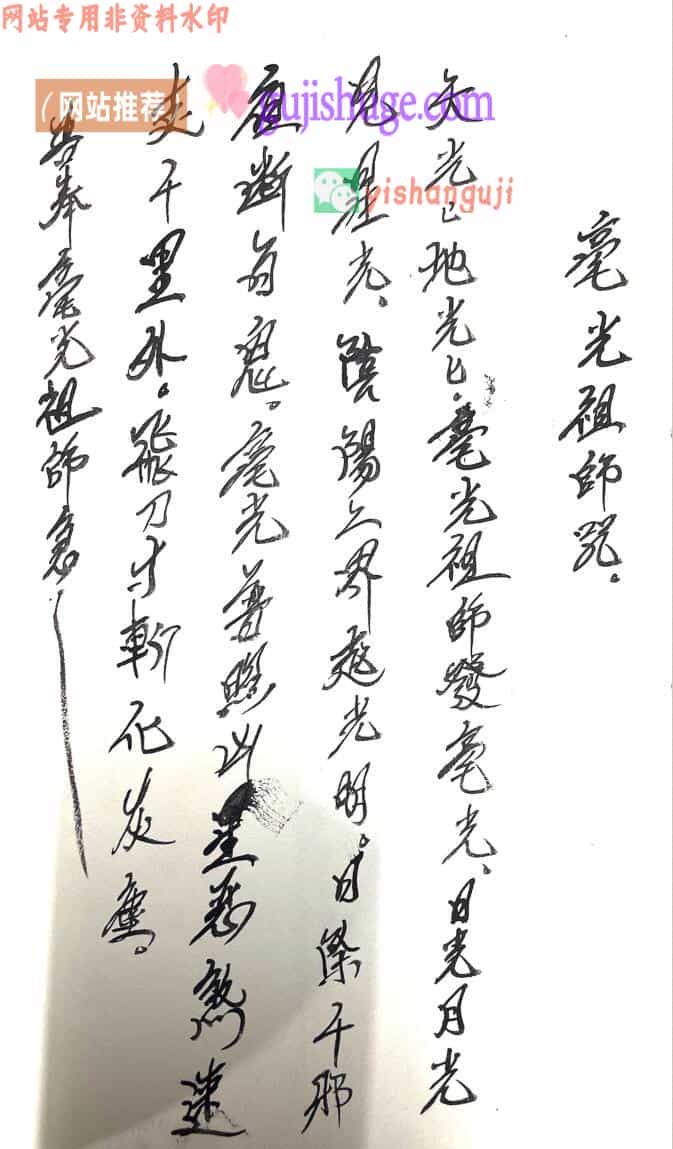 网站专用非资料水印
（网站推荐）
gujishuge.com
yishanguji
毫光祖師咒。
天光已地光已。毫光祖師發毫光、日光月光
見星光。陰陽之界起光明。日祭千邪
應断自應。毫光普照凶星惡煞速
走千里外。飛刀寸斬化灰塵。
吾奉毫光祖師急